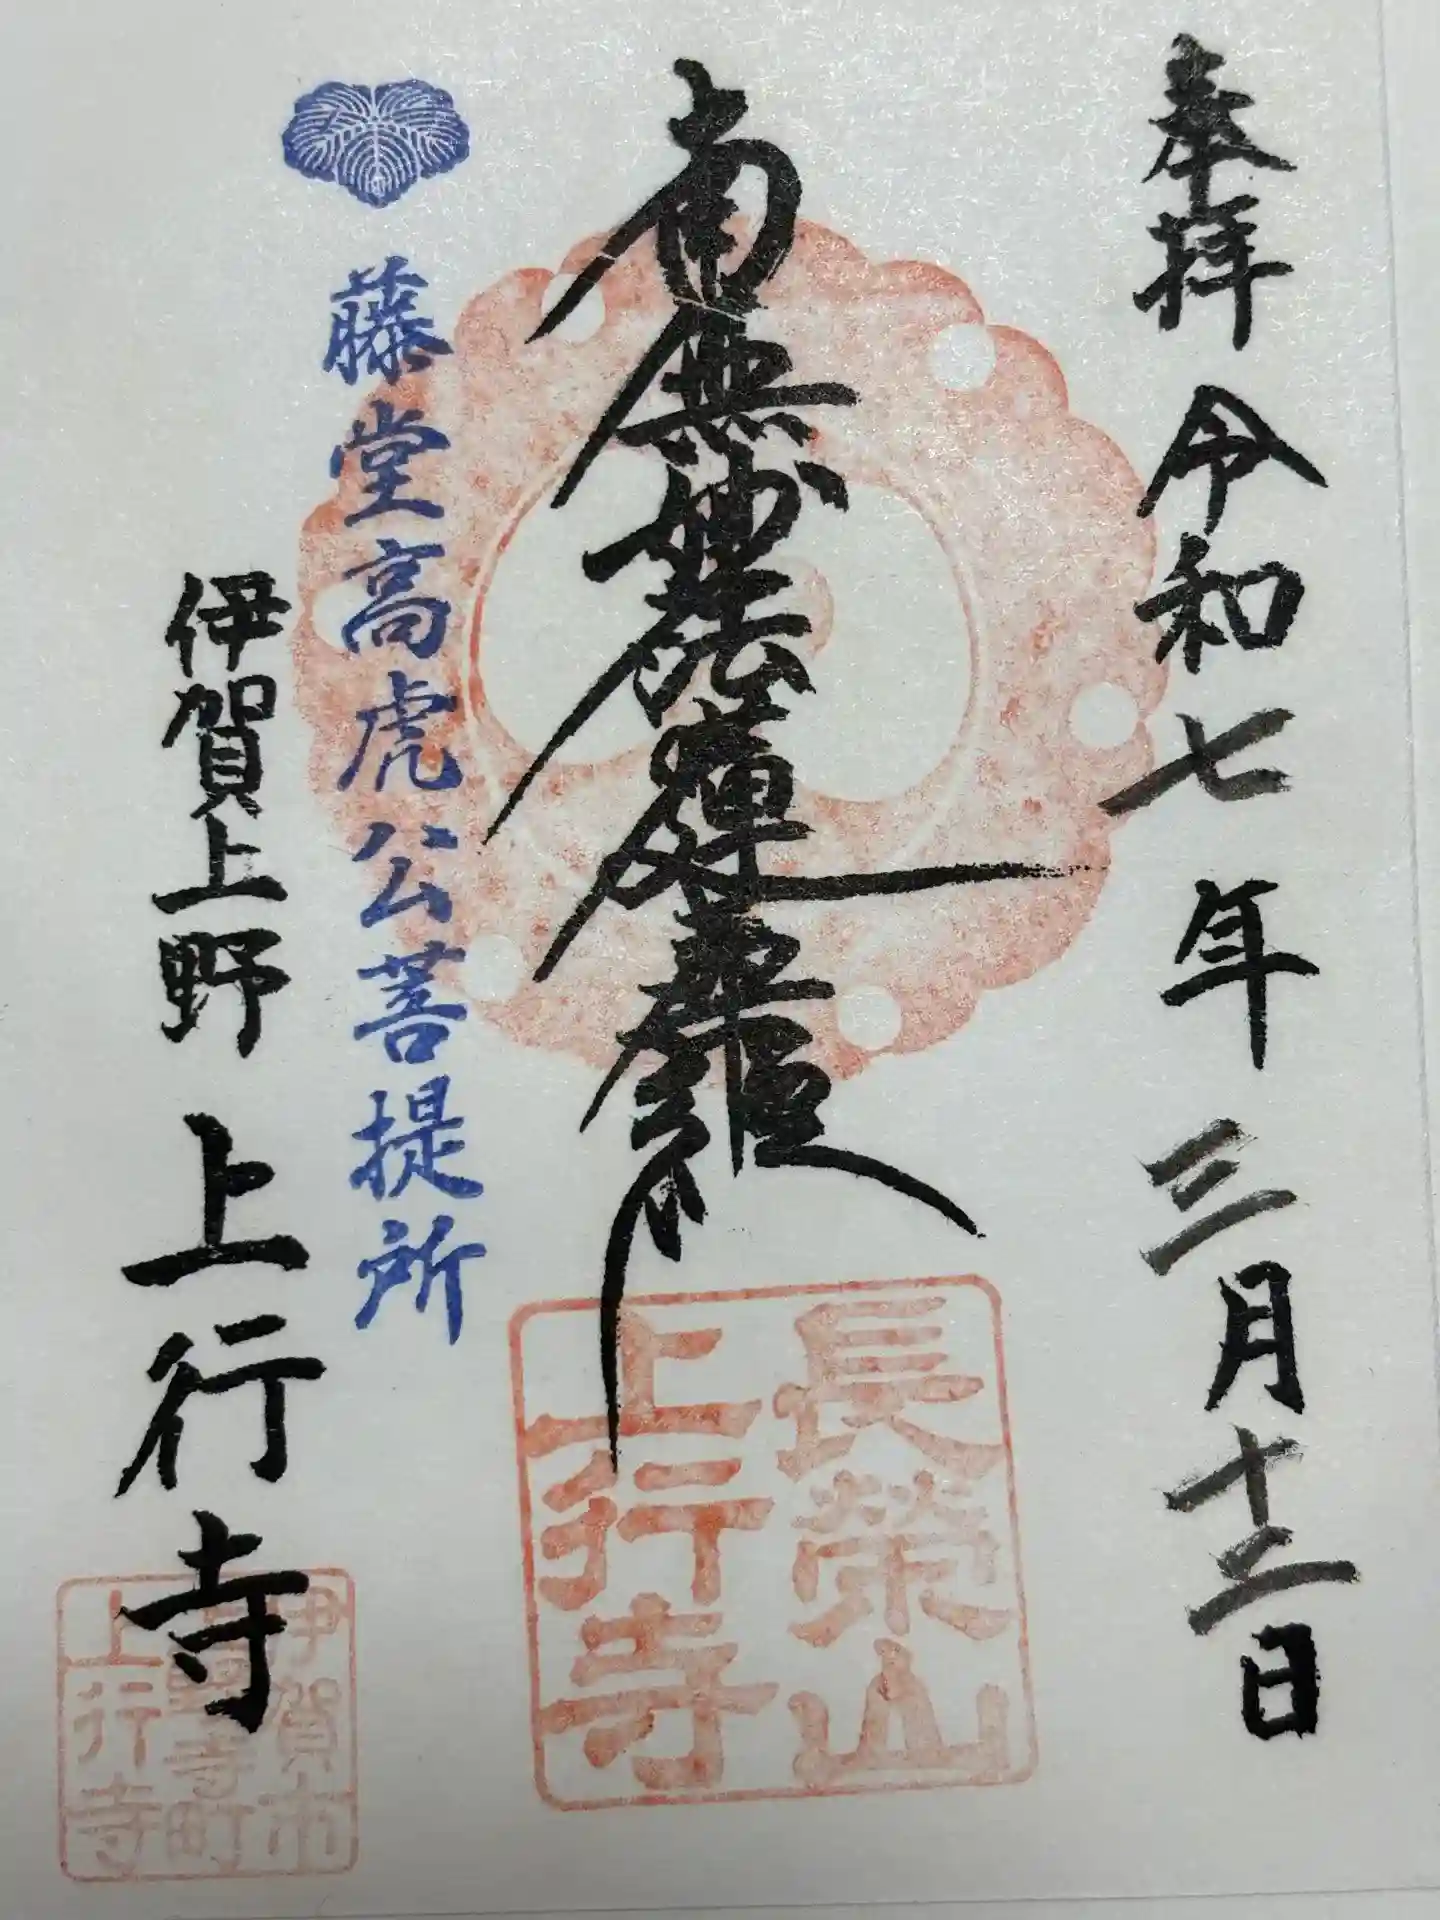 奉拝 令和七年 三月十二日
南無妙法蓮華経
長榮山
上行寺
藤堂高虎公菩提所
伊賀上野 上行寺
伊賀市
上野寺町
上行寺